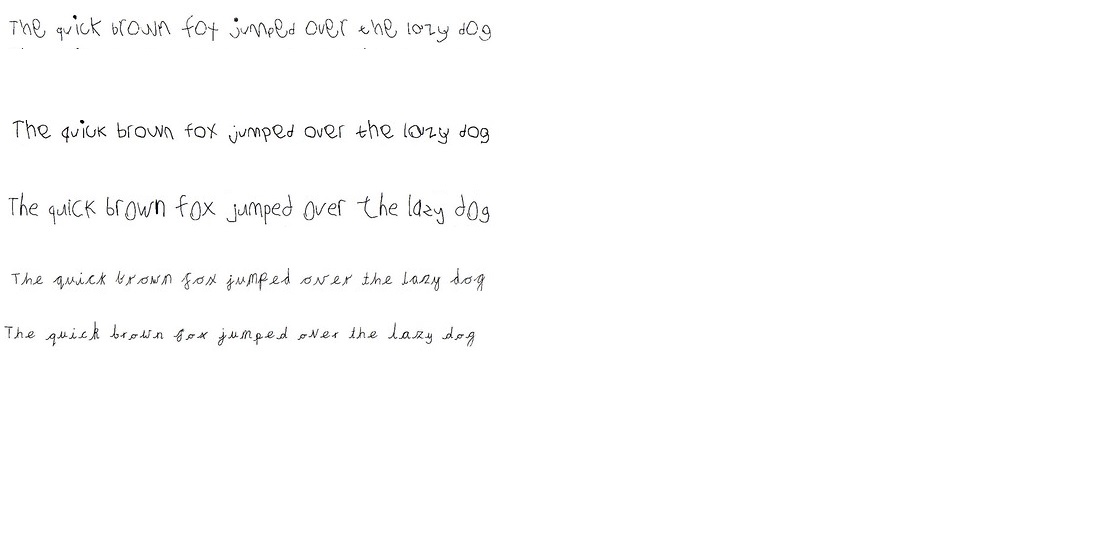 The quick brown fox jumped over the lazy dog
The quick brown fox jumped over the lazy dog
The quick brown fox jumped over the lazy dog
The quick brown fox jumped over the lazy dog
The quick brown fox jumped over the lazy dog